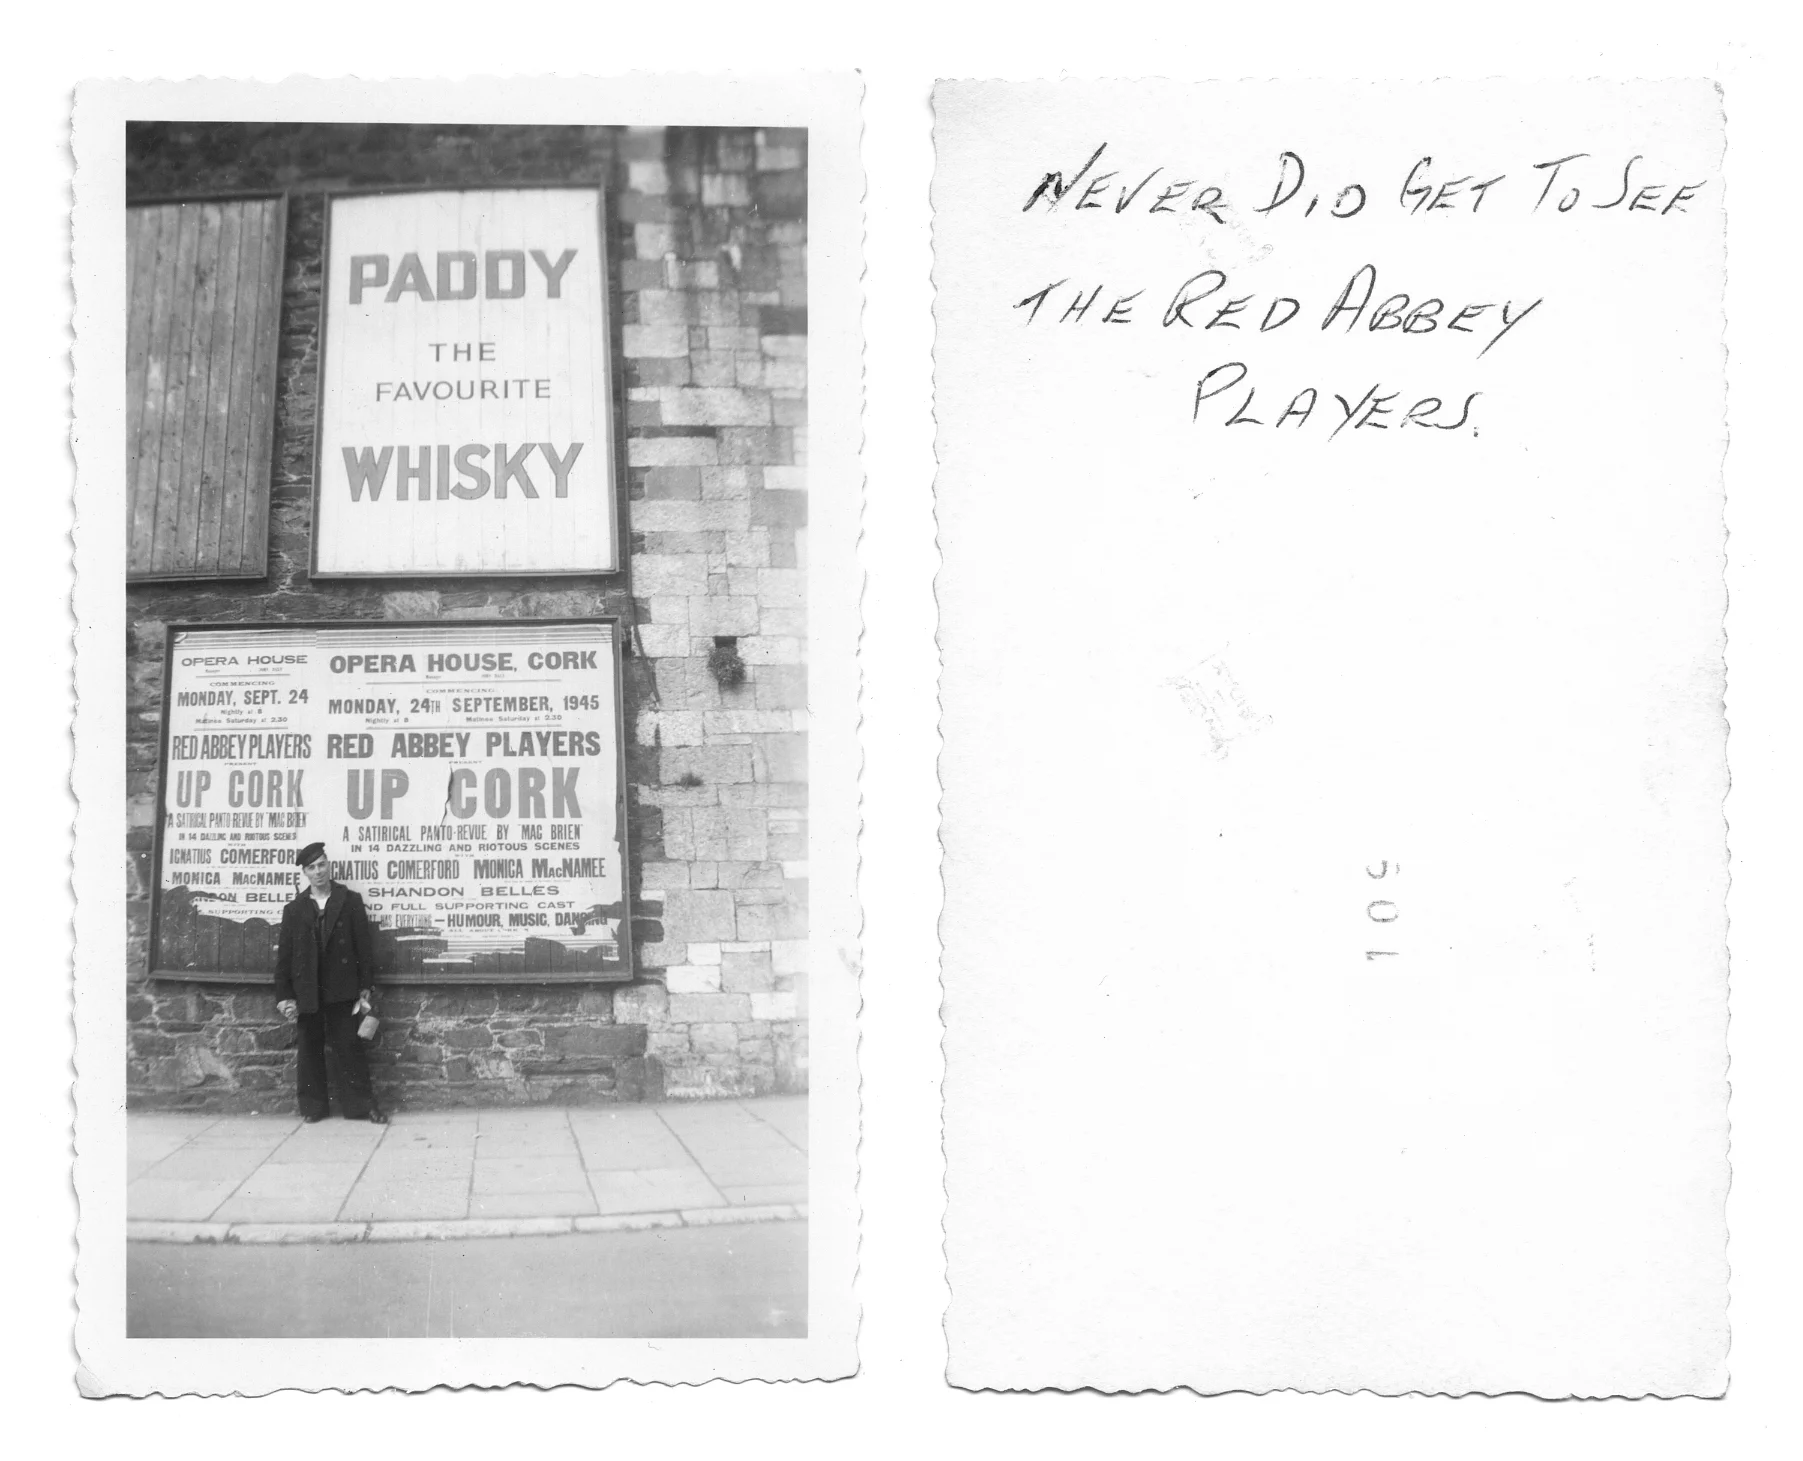 PADDY
THE
FAVOURITE
WHISKY
OPERA HOUSE
COMMENCING
MONDAY, SEPT. 24
Nightly at 8
Matinee Saturday at 2.30
RED ABBEY PLAYERS
PRESENT
UP CORK
A SATIRICAL PANTO-REVUE BY "MAC BRIEN"
IN 14 DAZZLING AND RIOTOUS SCENES
WITH
IGNATIUS COMERFOR
MONICA MACNAMEE
DON BELLE
SUPPORTING C
OPERA HOUSE, CORK
COMMENCING
MONDAY, 24TH SEPTEMBER, 1945
Nightly at 8 Matinee Saturday at 2.30
RED ABBEY PLAYERS
PRESENT
UP CORK
A SATIRICAL PANTO-REVUE BY "MAC BRIEN"
IN 14 DAZZLING AND RIOTOUS SCENES
WITH
IGNATIUS COMERFORD MONICA MACNAMEE
SHANDON BELLES
ND FULL SUPPORTING CAST
HAS EVERYTHING — HUMOUR, MUSIC, DANCING
NEVER DID GET TO SEE
THE RED ABBEY
PLAYERS.
105